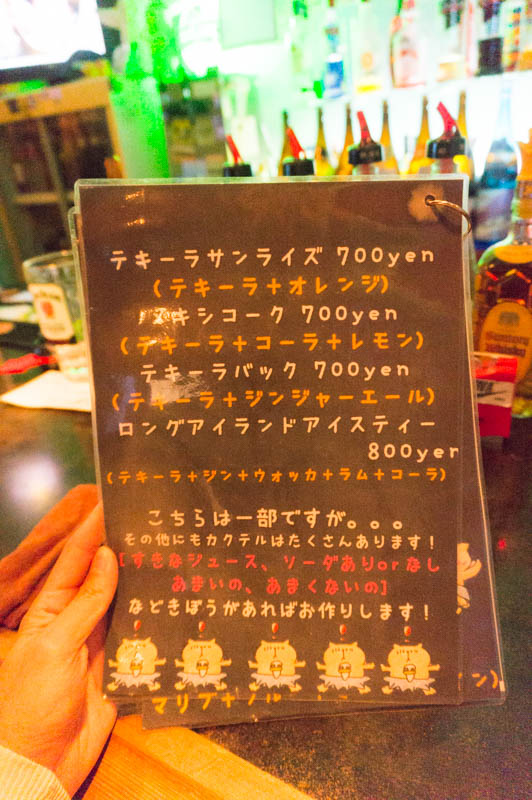 テキーラサンライズ 700yen
(テキーラ+オレンジ)
キシコーク 700yen
(テキーラ+コーラ+レモン)
テキーラバック 700yen
(テキーラ+ジンジャーエール)
ロングアイランドアイスティー
800yen
(テキーラ+ジン+ウォッカ+ラム+コーラ)
こちらは一部ですが。。。
その他にもカクテルはたくさんあります!
[すきなジュース、ソーダありorなし
あまいの、あまくないの]
などきぼうがあればお作りします!
ン)